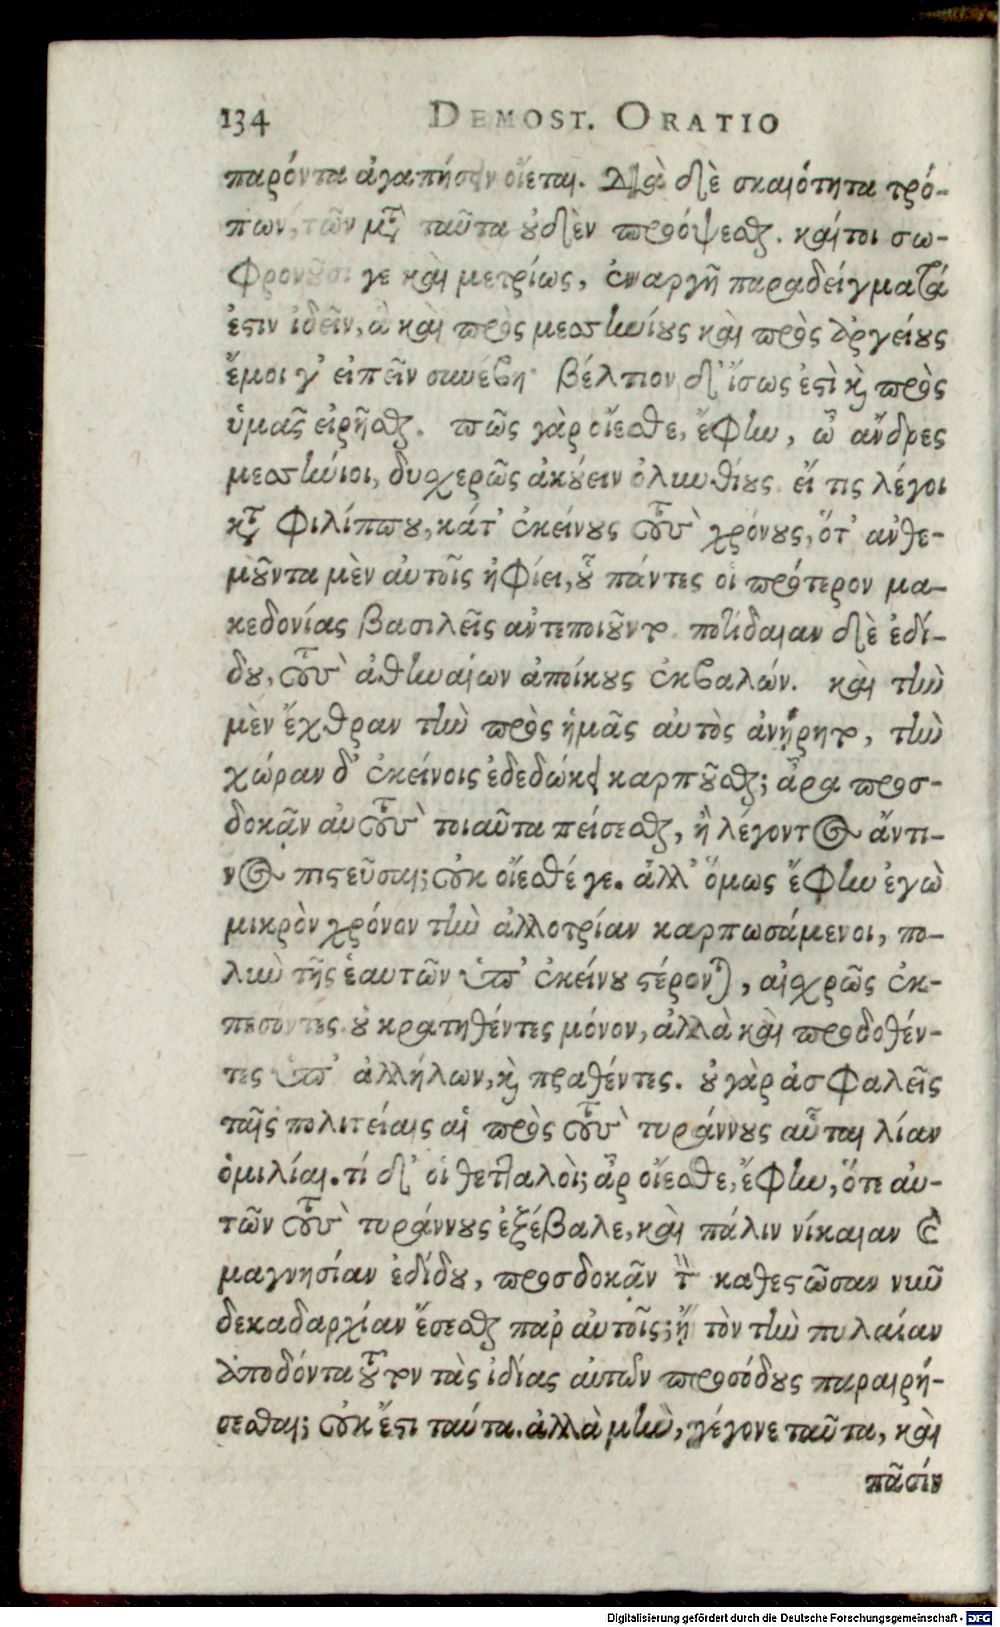 134 DEMOST. ORATIO
παρόντα ἀγαπήσειν οἴεται. Διὰ δὲ σκαιότητα τρό-
πων, τῶν μετὰ ταῦτα οὐδὲν προόψεσθαι. καίτοι σω-
φρονοῦσί γε καὶ μετρίως, ἐναργῆ παραδείγματά
ἐστιν ἰδεῖν, ἃ καὶ πρὸς μεσηνίους καὶ πρὸς ἀργείους
ἔμοι γ' εἰπεῖν συνέβη· βέλτιον δ' ἴσως ἐστὶ καὶ πρὸς
ὑμᾶς εἰρῆσθαι. πῶς γὰρ οἴεσθε, ἔφην, ὦ ἄνδρες
μεσήνιοι, δυχερῶς ἀκούειν ὀλυνθίους εἴ τις λέγοι
κατὰ Φιλίππου, κάτ' ἐκείνους τοὺς χρόνους, ὅτ' ἀνθε-
μοῦντα μὲν αὐτοῖς ἠφίει, οὗ πάντες οἱ πρότερον μα-
κεδονίας βασιλεῖς ἀντεποιοῦντο ποτίδαιαν δὲ ἐδί-
δου, τοὺς ἀθηναίων ἀποίκους ἐκβαλών. καὶ τὴν
μὲν ἔχθραν τὴν πρὸς ἡμᾶς αὐτὸς ἀνῄρητο, τὴν
χώραν δ' ἐκείνοις ἐδεδώκει καρποῦσθαι; ἆρα προσ-
δοκᾶν αὐτοὺς τοιαῦτα πείσεσθαι, ἢ λέγοντος ἄντι-
νος πιστεῦσαι; οὐκ οἴεσθέ γε. ἀλλ' ὅμως ἔφην ἐγὼ
μικρὸν χρόνον τὴν ἀλλοτρίαν καρπωσάμενοι, πο-
λὺν τῆς ἑαυτῶν ὑπ' ἐκείνου στέρονται, αἰχρῶς ἐκ-
πεσόντες οὐ κρατηθέντες μόνον, ἀλλὰ καὶ προδοθέν-
τες ὑπ' ἀλλήλων, καὶ πραθέντες. οὐ γὰρ ἀσφαλεῖς
ταῖς πολιτείαις αἱ πρὸς τοὺς τυράννους αὗται λίαν
ὁμιλίαι. τί δ' οἱ θετταλοὶ; ἆρ' οἴεσθε, ἔφην, ὅτε αὐ-
τῶν τοὺς τυράννους ἐξέβαλε, καὶ πάλιν νίκαιαν καὶ
μαγνησίαν ἐδίδου, προσδοκᾶν τὴν καθεστῶσαν νῦν
δεκαδαρχίαν ἔσεσθαι παρ' αὐτοῖς; ἢ τὸν τὴν πυλαίαν
ἀποδόντα τοῦτον τὰς ἰδίας αὐτῶν προσόδους παραιρή-
σεσθαι; οὐκ ἔστι ταύτα. ἀλλὰ μὴν, γέγονε ταῦτα, καὶ
πᾶσίν
Digitalisierung gefördert durch die Deutsche Forschungsgemeinschaft - DFG